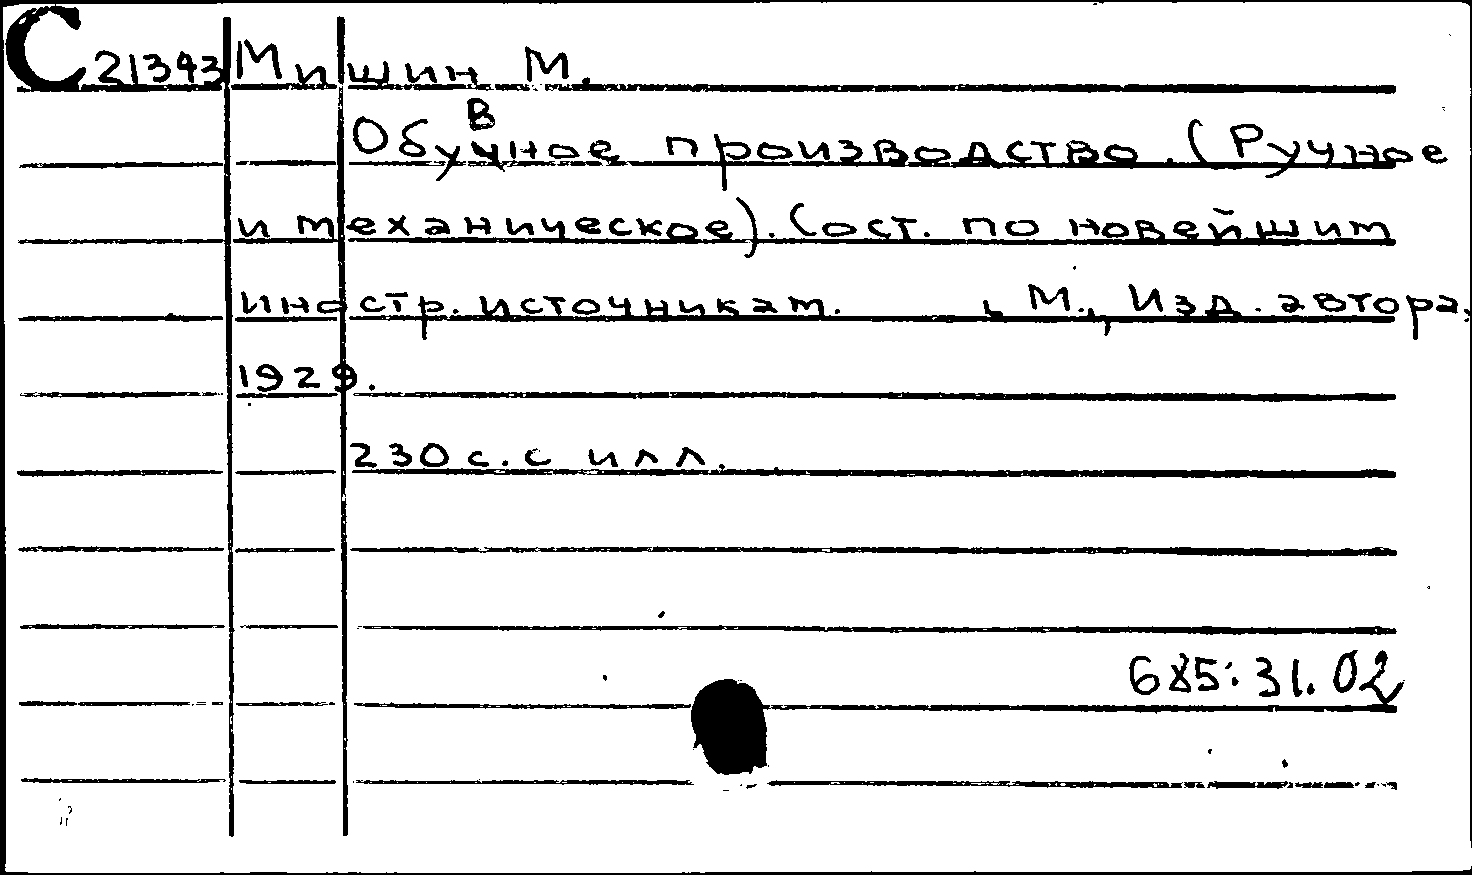 С 21343 Мишин М.
Обувное производство. (Ручное
и механическое). Сост. по новейшим
иностр. источникам. М., Изд. автора,
1929.
230 с. с илл.
685:31.02